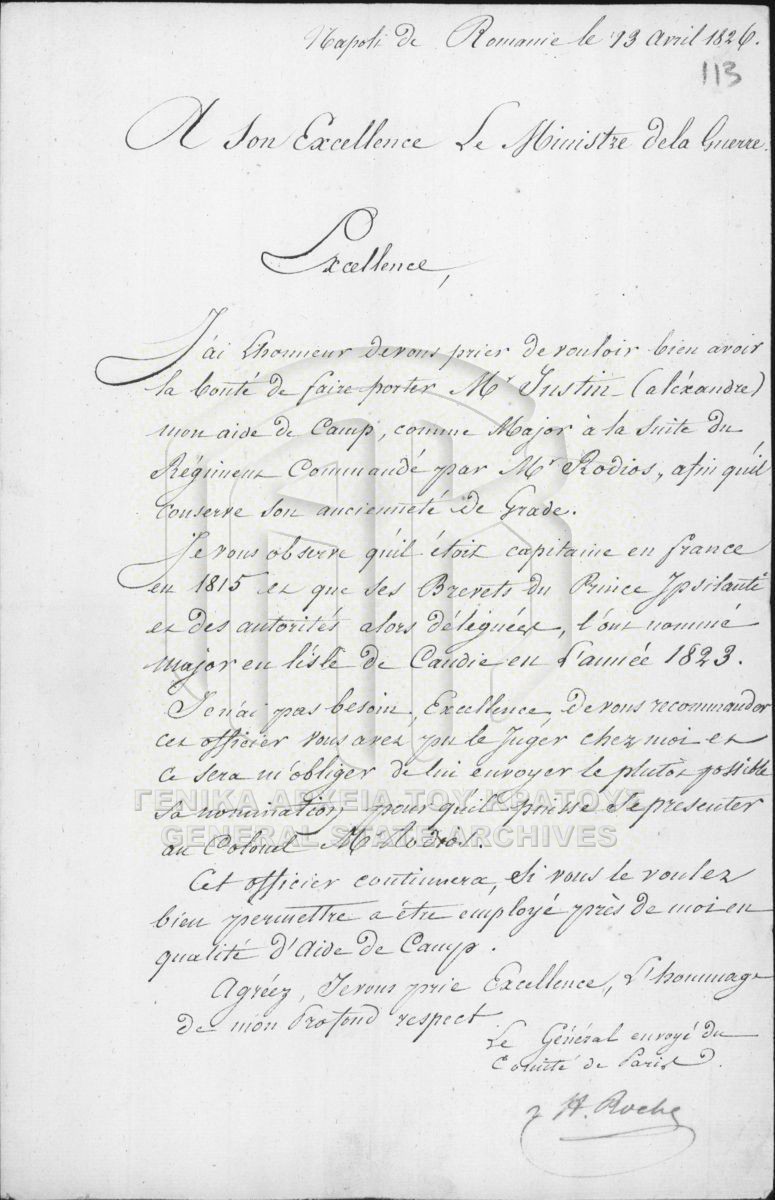 Napoli de Romanie le 13 avril 1826.
113
A Son Excellence Le Ministre de la Guerre.
Excellence,
J'ai l'honneur de vous prier de vouloir bien avoir
la bonté de faire porter Mr Justin (aléxandre)
mon aide de Camp, comme Major à la Suite du
Régiment Commandé par Mr Rodios, afin qu'il
conserve son ancienneté de Grade.
Je vous observe qu'il étoit capitaine en france
en 1815 et que ses Brevets du Prince Ypsilanti
et des autorités alors déléguées, l'ont nommé
major en l'isle de Candie en L'année 1823.
Je n'ai pas besoin, Excellence, de vous recommander
cet officier vous avez pu le Juger chez moi et
ce sera m'obliger de lui envoyer le plutot possible
sa nomination pour qu'il puisse se presenter
au Colonel Mr Rodios.
ΓΕΝΙΚΑ ΑΡΧΕΙΑ ΤΟΥ ΚΡΑΤΟΥΣ
GENERAL STATE ARCHIVES
Cet officier continuera, Si vous le voulez
bien permettre a être employé près de moi en
qualité d'Aide de Camp.
Agréez, Je vous prie Excellence, L'hommage
de mon Profond respect
Le Général envoyé du
Comité de Paris
H. Roche